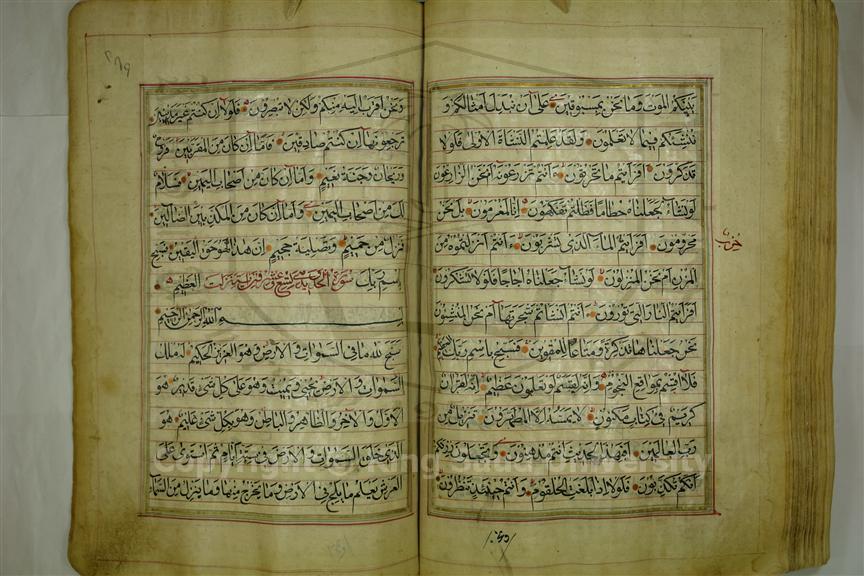 بينكم الموت وما نحن بمسبوقين على أن نبدل أمثالكم و
ننشئكم فيما لا تعلمون ولقد علمتم النشأة الأولى فلولا
تذكرون أفرأيتم ما تحرثون ءأنتم تزرعونه أم نحن الزارعون
لو نشاء لجعلناه حطاما فظلتم تفكهون إنا لمغرمون بل نحن
محرومون أفرأيتم الماء الذي تشربون ءأنتم أنزلتموه من
المزن أم نحن المنزلون لو نشاء جعلناه أجاجا فلولا تشكرون
أفرأيتم النار التي تورون ءأنتم أنشأتم شجرتها أم نحن المنشئون
نحن جعلناها تذكرة ومتاعا للمقوين فسبح باسم ربك العظيم
فلا أقسم بمواقع النجوم وإنه لقسم لو تعلمون عظيم إنه لقرآن
كريم في كتاب مكنون لا يمسه إلا المطهرون تنزيل من
رب العالمين أفبهذا الحديث أنتم مدهنون وتجعلون رزقكم
أنكم تكذبون فلولا إذا بلغت الحلقوم وأنتم حينئذ تنظرون
حزب
ونحن أقرب إليه منكم ولكن لا تبصرون فلولا إن كنتم غير مدينين
ترجعونها إن كنتم صادقين فأما إن كان من المقربين فروح
وريحان وجنت نعيم وأما إن كان من أصحاب اليمين فسلام
لك من أصحاب اليمين وأما إن كان من المكذبين الضالين
فنزل من حميم وتصلية جحيم إن هذا لهو حق اليقين فسبح
باسم ربك العظيم
سورة الحديد
بسم الله الرحمن الرحيم
سبح لله ما في السموات والأرض وهو العزيز الحكيم له ملك
السموات والأرض يحيي ويميت وهو على كل شيء قدير هو
الأول والآخر والظاهر والباطن وهو بكل شيء عليم هو
الذي خلق السموات والأرض في ستة أيام ثم استوى على
العرش يعلم ما يلج في الأرض وما يخرج منها وما ينزل من السماء